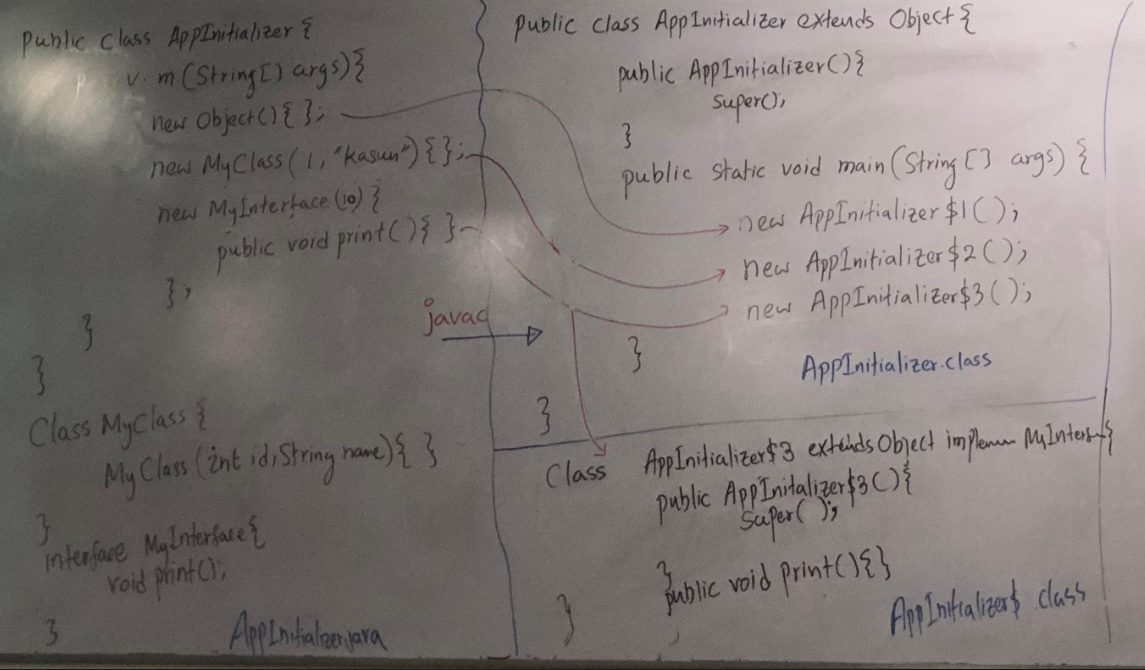 public class AppInitializer {
p v. m (String[] args){
new Object() { };
new MyClass( 1, "kasun") { };
new MyInterface (10) {
public void print() { }
};
}
}
Class MyClass {
MyClass (int id, String name) { }
}
interface MyInterface {
void print();
}
AppInitializer.java
javac
public class AppInitializer extends Object {
public AppInitializer() {
super();
}
public static void main (String [] args) {
new AppInitializer $1 ( );
new AppInitializer $2 ( );
new AppInitializer $3 ( );
}
AppInitializer.class
}
Class AppInitializer $3 extends Object implemen MyInterf {
public AppInitalizer $3 ( ) {
super( );
}
public void print() { }
}
AppInitializer$ class